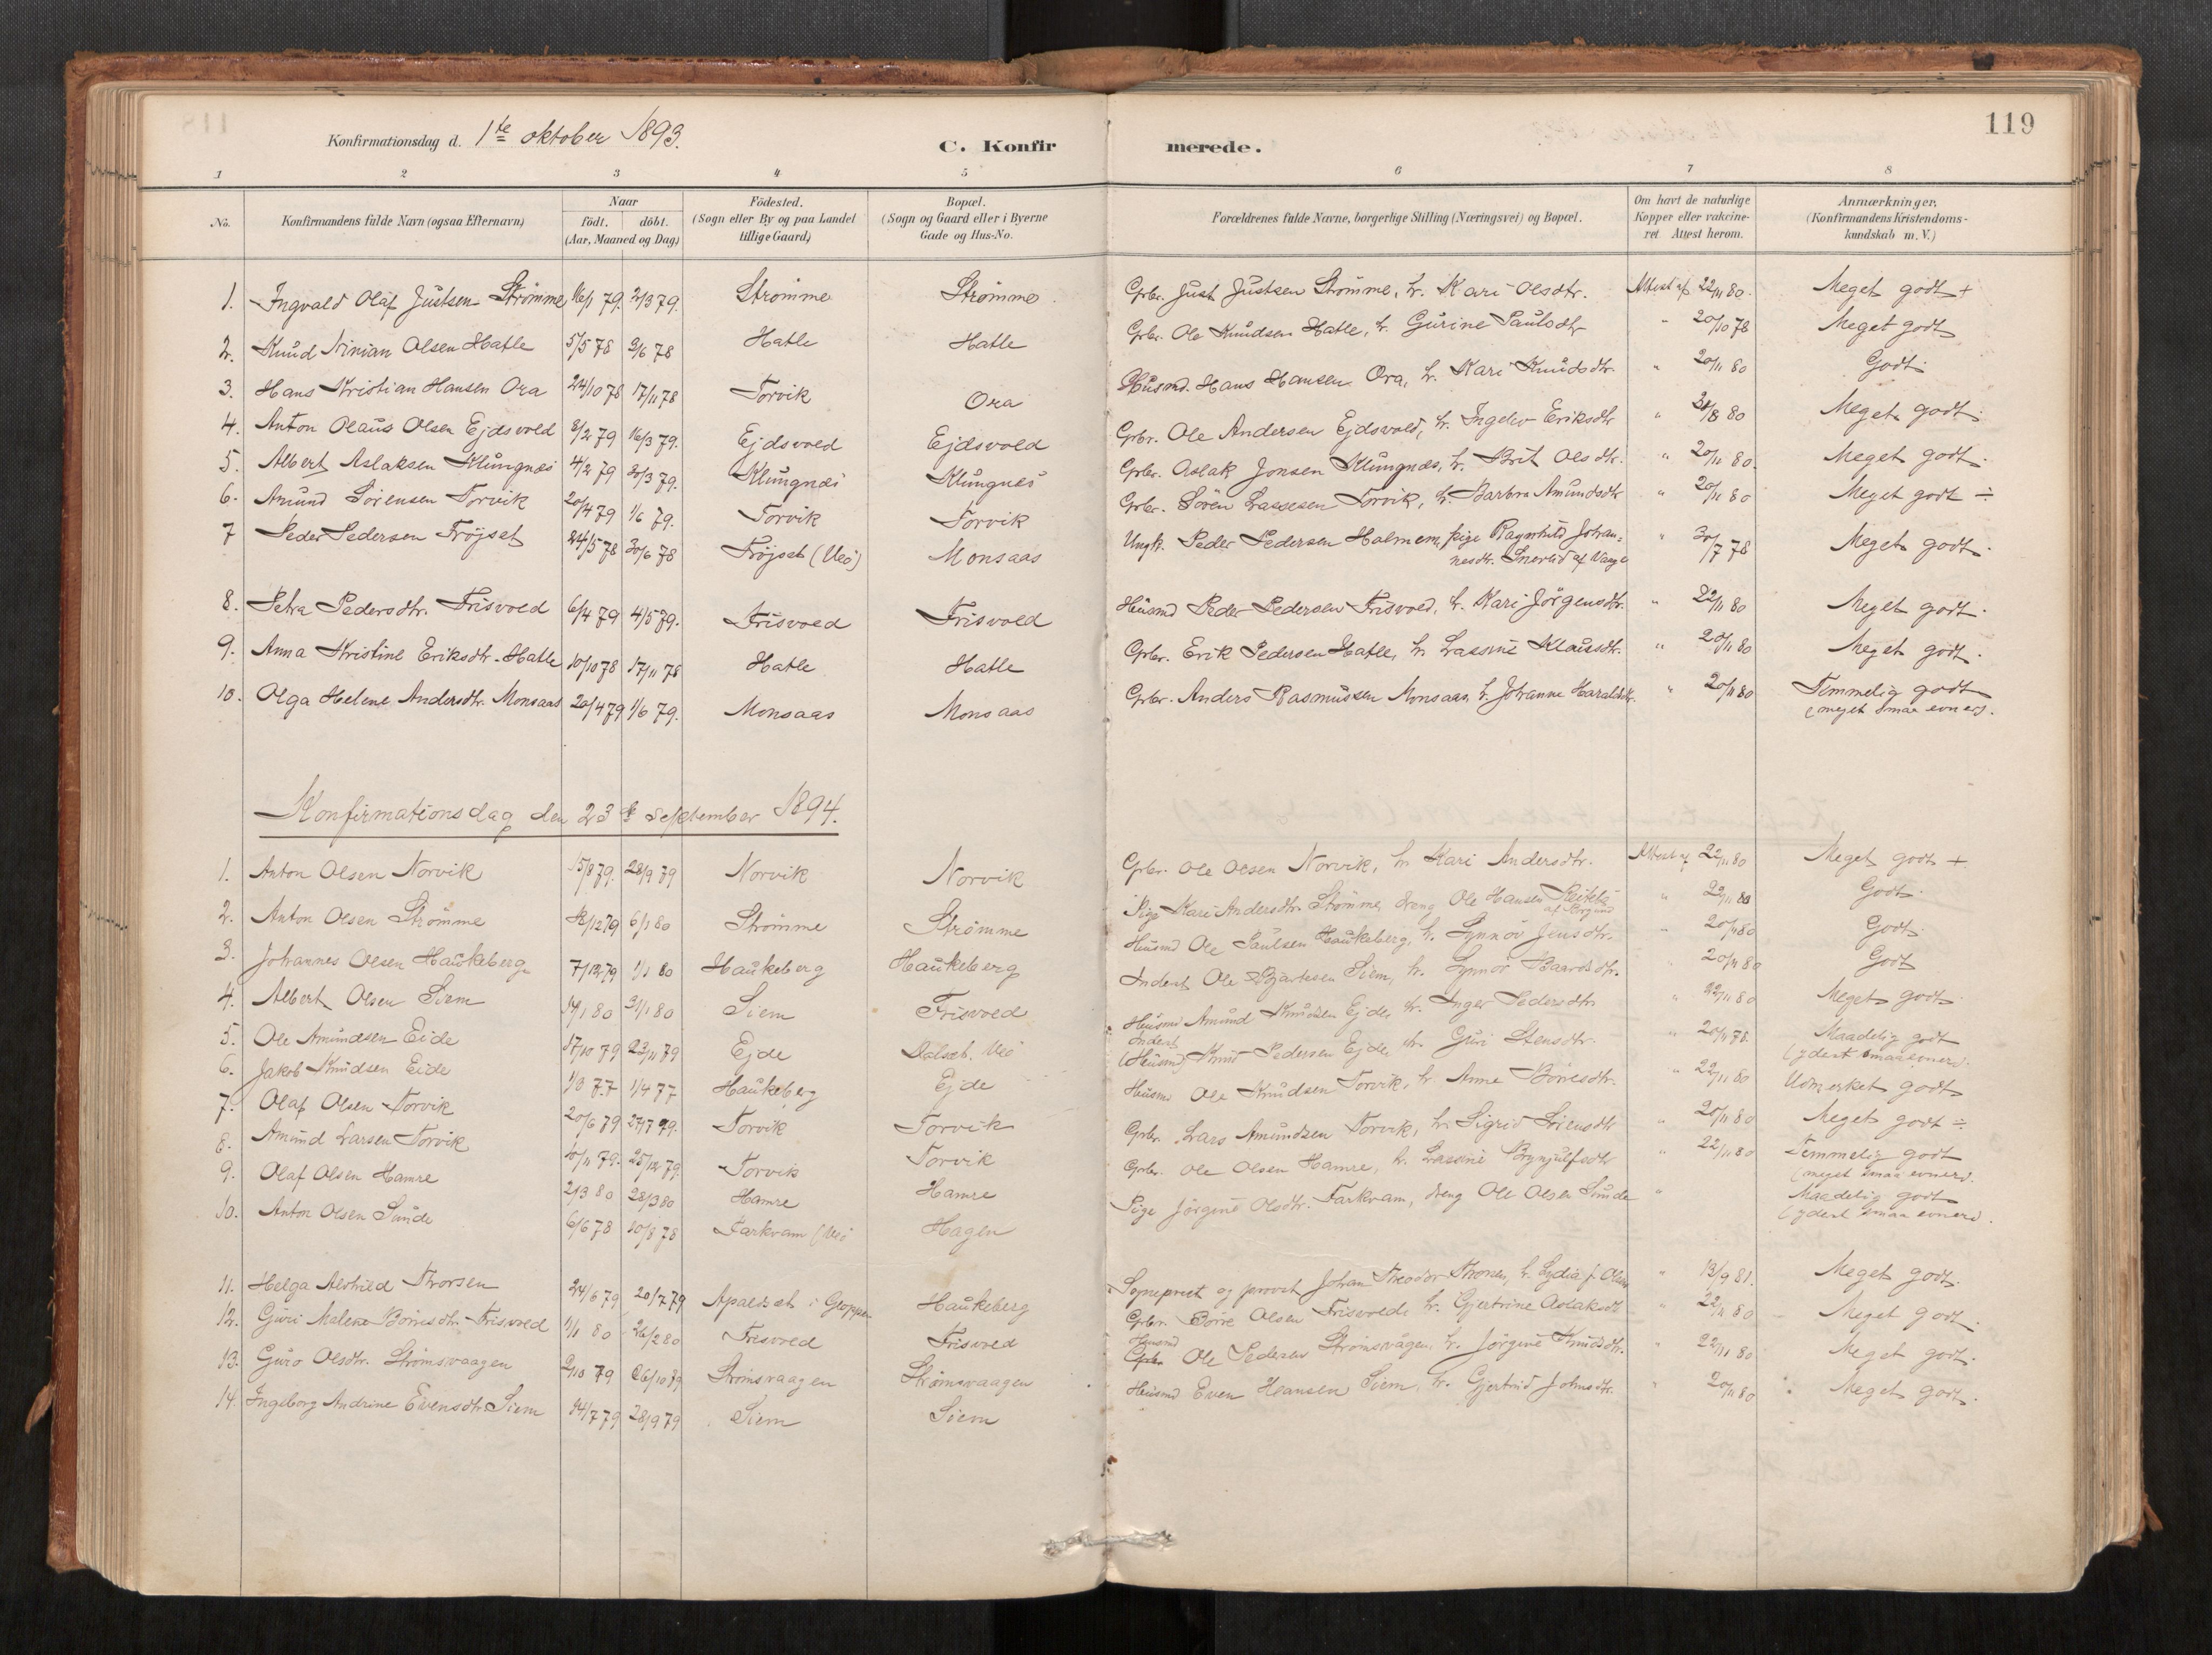 119
Konfirmationsdag d. 1te oktober 1893.
C. Konfirmerede.
1 2 3 4 5 6 7 8
No. Konfirmandens fulde Navn (ogsaa Efternavn) Naar født. døbt. (Aar, Maaned og Dag) Fødested. (Sogn eller By og paa Landet tillige Gaard) Bopæl. (Sogn og Gaard eller i Byerne Gade og Hus-No. Forældrenes fulde Navne, borgerlige Stilling (Næringsvei) og Bopæl. Om havt de naturlige Kopper eller vakcineret. Attest herom. Anmærkninger. (Konfirmandens Kristendomskundskab m. V.)
1. Ingvald Olaf Justsen Strømme 16/1 79. 2/3 79. Strømme Strømme Gbr. Just Justsen Strømme, h. Kari Olsdtr. Attest af 22/11 80. Meget godt +
2. Knud Ninian Olsen Hatle 5/5 78 9/6 78 Hatle Hatle Gbr. Ole Knudsen Hatle, h. Gurine Paulsdtr " 20/10 78 Meget godt
3. Hans Kristian Hansen Ora 24/10 78 17/11 78 Torvik Ora Husmd. Hans Hansen Ora, h. Kari Knudsdtr. " 20/11 80 Godt
4. Anton Olaus Olsen Ejdsvold 8/2 79 16/3 79. Ejdsvold Ejdsvold Gbr. Ole Andersen Ejdsvold, h. Ingebr Eriksdtr " /8 80 Meget godt.
5. Albert Aslaksen Klungnes 4/2 79 30/3 79. Klungnes Klungnes Gbr. Aslak Jonsen Klungnes, h. Brit Olsdtr. " 20/11 80. Meget godt.
6. Amund Sørensen Torvik 20/4 79 1/6 79. Torvik Torvik Gbr. Søren Lassesen Torvik, h. Barbra Amundsdtr " 20/11 80 Meget godt ÷
7 Peder Pedersen Frøjset 24/5 78 30/6 78 Frøjset (Veø) Monsaas Ungk. Peder Pedersen Halmem, pige Ragnhild Johan=
nesdtr. af
" /7 78 Meget godt.
8. Petra Pedersdtr. Frisvold 6/4 79 4/5 79. Frisvold Frisvold Husmd Peder Pedersen Frisvold, h. Kari Jørgensdtr. " 22/11 80 Meget godt.
9. Anna Kristine Eriksdtr. Hatle 10/10 78 17/11 78 Hatle Hatle Gbr. Erik Pedersen Hatle, h. Lassine Klausdtr. " 20/11 80 Meget godt.
10. Olga Helene Andersdtr. Monsaas 20/4 79 1/6 79. Monsaas Monsaas Gbr. Anders Rasmussen Monsaas, h. Johanne Haraldsdtr. " 20/11 80 Temmelig godt
(meget smaa evner).
Konfirmationsdag den 23de September 1894.
1. Anton Olsen Norvik 15/8 79. 28/9 79 Norvik Norvik Gbr. Ole Olsen Norvik, h. Kari Andersdtr. Attest af 22/11 80 Meget godt +
2. Anton Olsen Strømme /12 79 6/1 80 Strømme Strømme Pige Kari Andersdtr. Strømme, dreng Ole Hansen " 22/11 80 Godt.
3. Johannes Olsen Haukeberg 7/12 79 1/1 80 Haukeberg Haukeberg Husmd Ole Paulsen Haukeberg, h. Synnøv Jensdtr. " 20/11 80 Godt.
4. Albert Olsen Siem 14/1 80 31/1 80 Siem Frisvold Inderst Ole Bjartesen Siem, h. Synnøv Baardsdtr. " 20/11 80 Godt
5. Ole Amundsen Eide 17/10 79 23/11 79 Ejde Veø Husmd Amund Knudsen Ejde, h. Inger Pedersdtr " 22/11 80 Meget godt.
6. Jakob Knudsen Eide 1/3 77 1/4 77 Haukeberg Ejde Inderst (Husmd) Knud Pedersen Ejde, h. Guri Stensdtr. " 20/11 78. Maadelig godt
(yderst smaa evner).
7. Olaf Olsen Torvik 20/6 79 27/7 79. Torvik Torvik Husmd Ole Knudsen Torvik, h. Anne Børresdtr. " 22/11 80 Udmerket godt
8. Amund Larsen Torvik 10/11 79. 25/12 79. Torvik Torvik Gbr. Lars Amundsen Torvik, h. Sigrid Sørensdtr " 20/11 80 Meget godt ÷
9. Olaf Olsen Hamre 2/3 80 28/3 80 Hamre Hamre Gbr. Ole Olsen Hamre, h. Lassine Brynjulfsdtr " 22/11 80 Temmelig godt
(meget smaa evner).
10. Anton Olsen Sunde 6/6 78 /8 78 Farkvam (Veø Hagen Pige Jørgine Olsdtr. Farkvam, dreng Ole Olsen Sunde " Maadelig godt
(yderst smaa evner).
11. Helga Alvhild Thorsen 24/6 79 20/7 79 Apaldset i Gloppen Haukeberg Sogneprest og provst Johan Theodor Thorsen, h. Lydia f. Olsen " 13/9 81. Meget godt.
12. Guri Malene Børresdtr. Frisvold 11/1 80 26/2 80 Frisvold Frisvold Gbr. Børre Olsen Frisvold, h. Gjertrine Aslaksdtr " 22/11 80 Meget godt.
13. Guro Olsdtr. Strømsvaagen 2/10 79 26/10 79 Strømsvaagen Strømsvaagen Husmd Ole Pedersen Strømsvågen, h. Jørgine Knudsdtr. " 22/11 80 Meget godt.
14. Ingeborg Andrine Evensdtr. Siem 14/7 79 28/9 79 Siem Siem Husmd Even Hansen Siem, h. Gjertrud Johnsdtr. " 20/11 80 Meget godt.